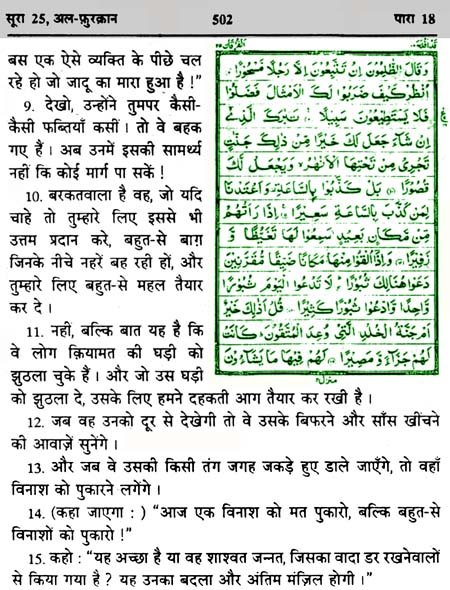 सूरा 25, अल-फ़ुरक़ान 502 पारा 18
बस एक ऐसे व्यक्ति के पीछे चल
रहे हो जो जादू का मारा हुआ है !”
9. देखो, उन्होंने तुमपर कैसी-
कैसी फब्तियाँ कसीं । तो वे बहक
गए हैं । अब उनमें इसकी सामर्थ्य
नहीं कि कोई मार्ग पा सकें !
10. बरकतवाला है वह, जो यदि
चाहे तो तुम्हारे लिए इससे भी
उत्तम प्रदान करे, बहुत-से बाग़
जिनके नीचे नहरें बह रही हों, और
तुम्हारे लिए बहुत-से महल तैयार
कर दे ।
11. नहीं, बल्कि बात यह है कि
वे लोग क़ियामत की घड़ी को
झुठला चुके हैं । और जो उस घड़ी
को झुठला दे, उसके लिए हमने दहकती आग तैयार कर रखी है ।
12. जब वह उनको दूर से देखेगी तो वे उसके बिफरने और साँस खींचने
की आवाज़ें सुनेंगे ।
13. और जब वे उसकी किसी तंग जगह जकड़े हुए डाले जाएँगे, तो वहाँ
विनाश को पुकारने लगेंगे ।
14. (कहा जाएगा : ) “आज एक विनाश को मत पुकारो, बल्कि बहुत-से
विनाशों को पुकारो !”
15. कहो : “यह अच्छा है या वह शाश्वत जन्नत, जिसका वादा डर रखनेवालों
से किया गया है ? यह उनका बदला और अंतिम मंज़िल होगी ।”
وَقَالَ الظّٰلِمُوْنَ اِنْ تَتَّبِعُوْنَ اِلَّا رَجُلًا مَّسْحُوْرًا
اُنْظُرْ كَيْفَ ضَرَبُوْا لَكَ الْاَمْثَالَ فَضَلُّوْا
فَلَا يَسْتَطِيْعُوْنَ سَبِيْلًا تَبٰرَكَ الَّذِيْٓ
اِنْ شَآءَ جَعَلَ لَكَ خَيْرًا مِّنْ ذٰلِكَ جَنّٰتٍ
تَجْرِيْ مِنْ تَحْتِهَا الْاَنْهٰرُ وَيَجْعَلْ لَّكَ
قُصُوْرًا بَلْ كَذَّبُوْا بِالسَّاعَةِ وَاَعْتَدْنَا
لِمَنْ كَذَّبَ بِالسَّاعَةِ سَعِيْرًا اِذَا رَاَتْهُمْ
مِّنْ مَّكَانٍۭ بَعِيْدٍ سَمِعُوْا لَهَا تَغَيُّظًا وَّ
زَفِيْرًا وَاِذَآ اُلْقُوْا مِنْهَا مَكَانًا ضَيِّقًا مُّقَرَّنِيْنَ
دَعَوْا هُنَالِكَ ثُبُوْرًا لَا تَدْعُوا الْيَوْمَ ثُبُوْرًا
وَّاحِدًا وَّادْعُوْا ثُبُوْرًا كَثِيْرًا قُلْ اَذٰلِكَ خَيْرٌ
اَمْ جَنَّةُ الْخُلْدِ الَّتِيْ وُعِدَ الْمُتَّقُوْنَ كَانَتْ
لَهُمْ جَزَآءً وَّمَصِيْرًا لَهُمْ فِيْهَا مَا يَشَآءُوْنَ